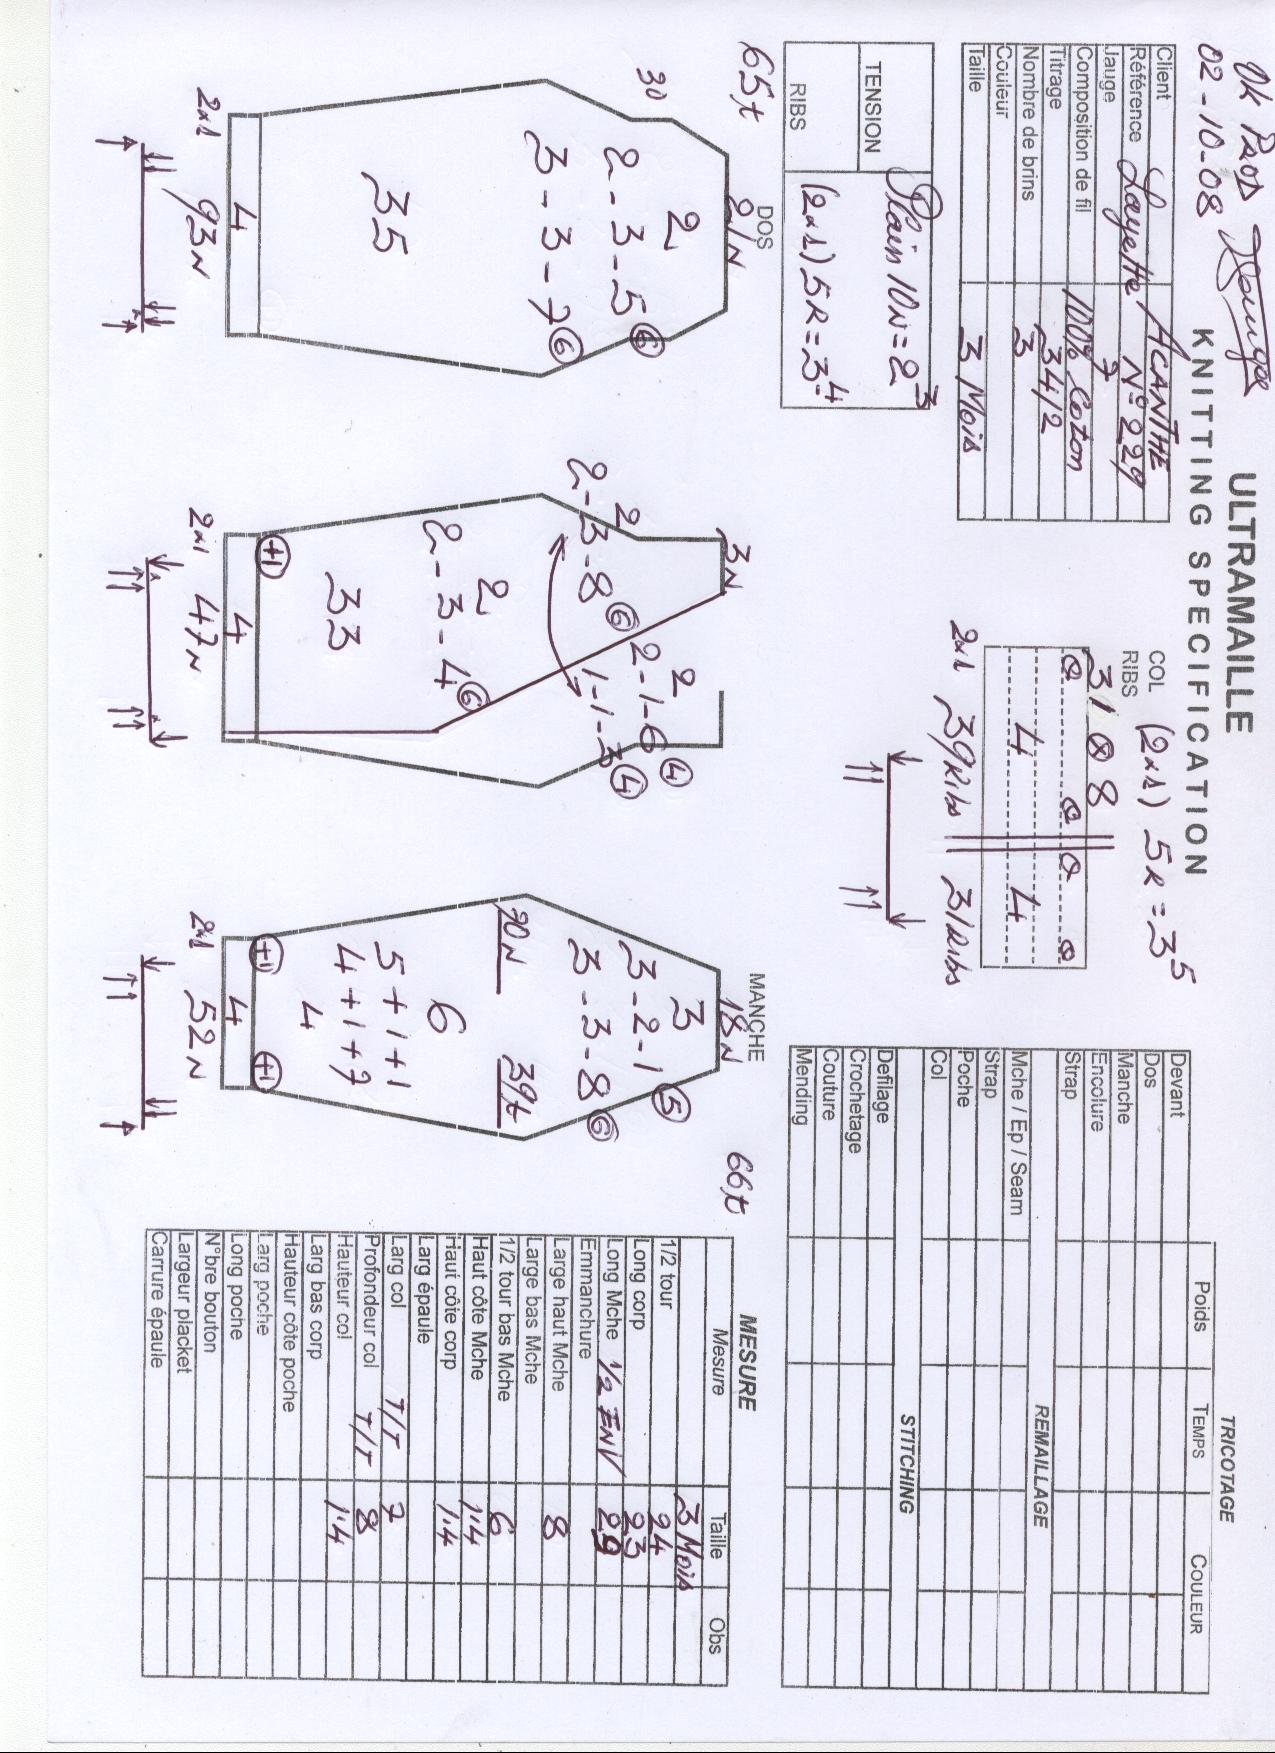 OK PROD
02-10-08
ULTRAMAILLE
KNITTING SPECIFICATION
Client ACANTHE
Référence Layette N° 229
Jauge 7
Composition de fil 100% Coton
Titrage 34/2
Nombre de brins 3
Couleur
Taille 3 Mois
TENSION Plain 10N=2³
RIBS (2x1) 5R=3⁴
COL (2x1) 5R=3⁵
RIBS
31 ⊗ 8
4 4
2x1 39Ribs 31Ribs
TRICOTAGE
Poids TEMPS COULEUR
Devant
Dos
Manche
Encolure
Strap
REMAILLAGE
Mche / Ep / Seam
Strap
Poche
Col
STITCHING
Defilage
Crochetage
Couture
Mending
65t
DOS
21N
30
2
2-3-5 ⑥
3-3-7 ⑥
35
4
2x1 93N
3N
2
2-3-8 ⑥
2 ④
2-1-6
1-1-3 ④
2
2-3-4 ⑥
33
+1
4
2x1 47N
MANCHE
66t
18N
3
3-2-1 ⑤
3-3-8 ⑥
70N 39t
6
5+1+1
4+1+7
4
+1 +1
4
2x1 52N
MESURE
Mesure Taille Obs
3 Mois
1/2 tour 24
Long corp 23
Long Mche 1/2 ENV 29
Emmanchure
Large haut Mche 8
Large bas Mche
1/2 tour bas Mche 6
Haut côte Mche 1.4
Haut côte corp 1.4
Larg épaule
Larg col T/T 7
Profondeur col T/T 8
Hauteur col 1.4
Larg bas corp
Hauteur côte poche
Larg poche
Long poche
N°bre bouton
Largeur placket
Carrure épaule